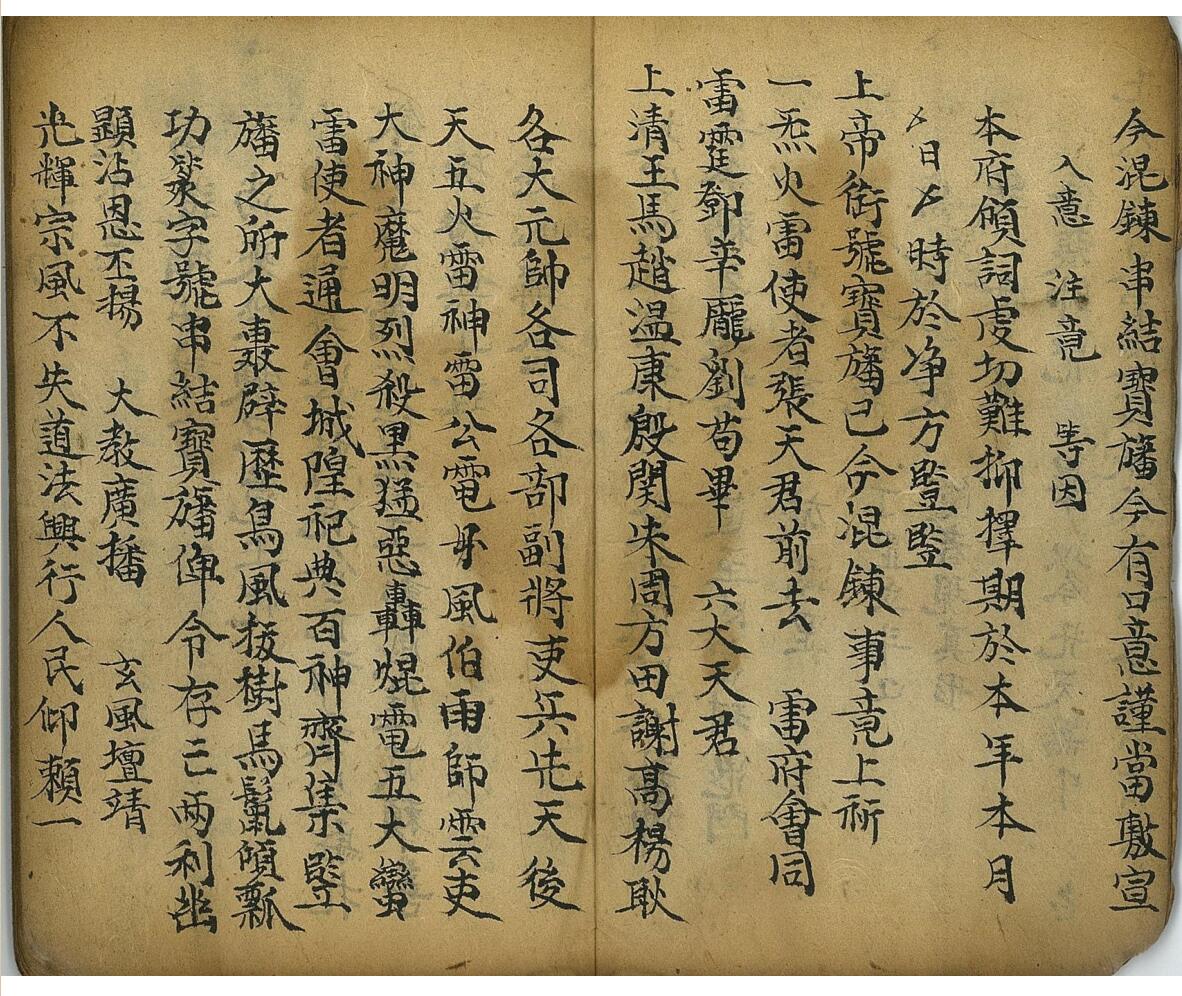 今混鍊串結寶旛今有口意謹當敷宣
入意 注竟 等因
本府頒詞虔切難抑擇期於本年本月
〤日〤時於净方豎豎
上帝銜號寶旛已今混鍊事竟上祈
一炁火雷使者張天君前去 雷府會同
雷霆鄧辛龐劉苟畢 六大天君
上清王馬趙温康殷関朱周方田謝高楊耿
各大元帥各司各部副將吏兵先天後
天五火雷神雷公電母風伯雨師雲吏
大神魔明烈殺黒猛惡轟焜電五大蠻
雷使者通會城隍祀典百神齊集豎
旛之所大轟辟歷烏風拔樹馬鬣傾瓢
功裝字號串結寶旛俾令存亡兩利幽
顕沾恩丕揚 大教廣播 玄風壇靖
光輝宗風不失道法興行人民仰賴一